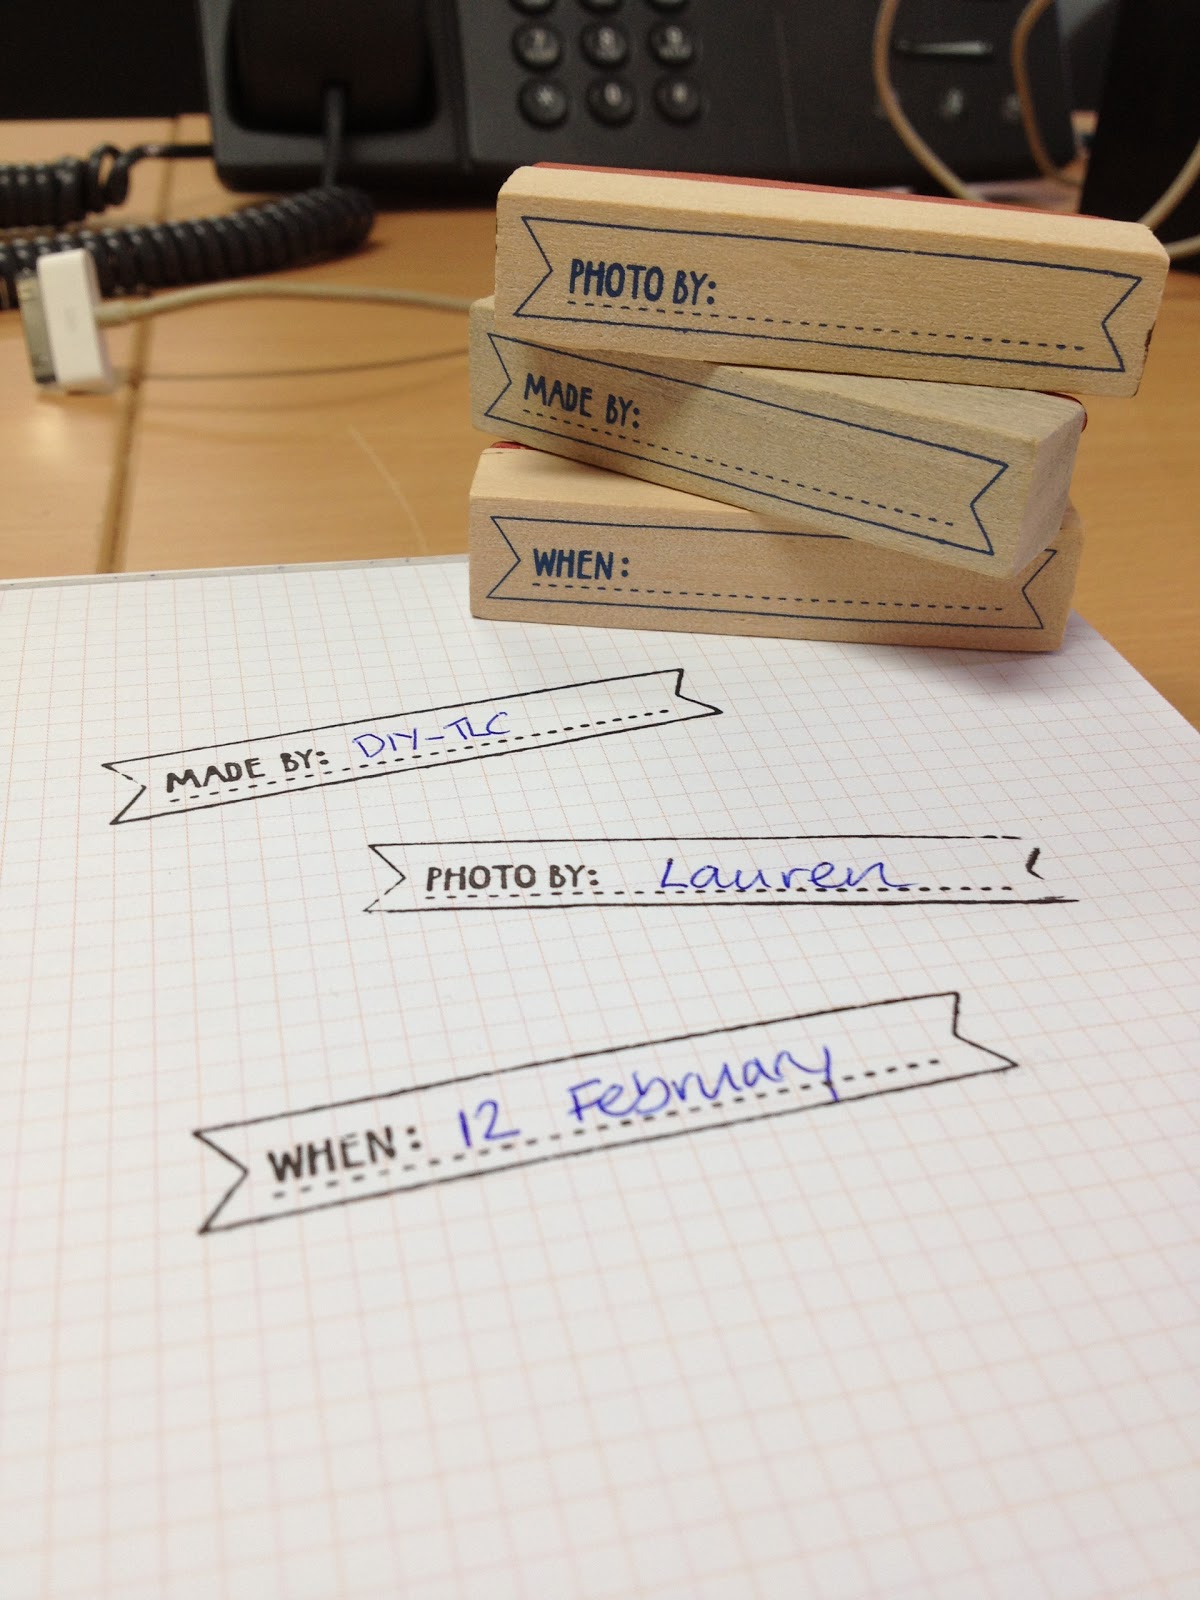 PHOTO BY:
MADE BY:
WHEN:
MADE BY: DIY-TLC
PHOTO BY: Lauren
WHEN: 12 February